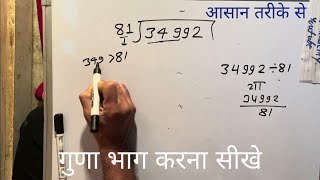 आसान तरीके से
81 ) 34992
1
349 > 81
34992 ÷ 81
या
34992
81
गुणा भाग करना सीखे